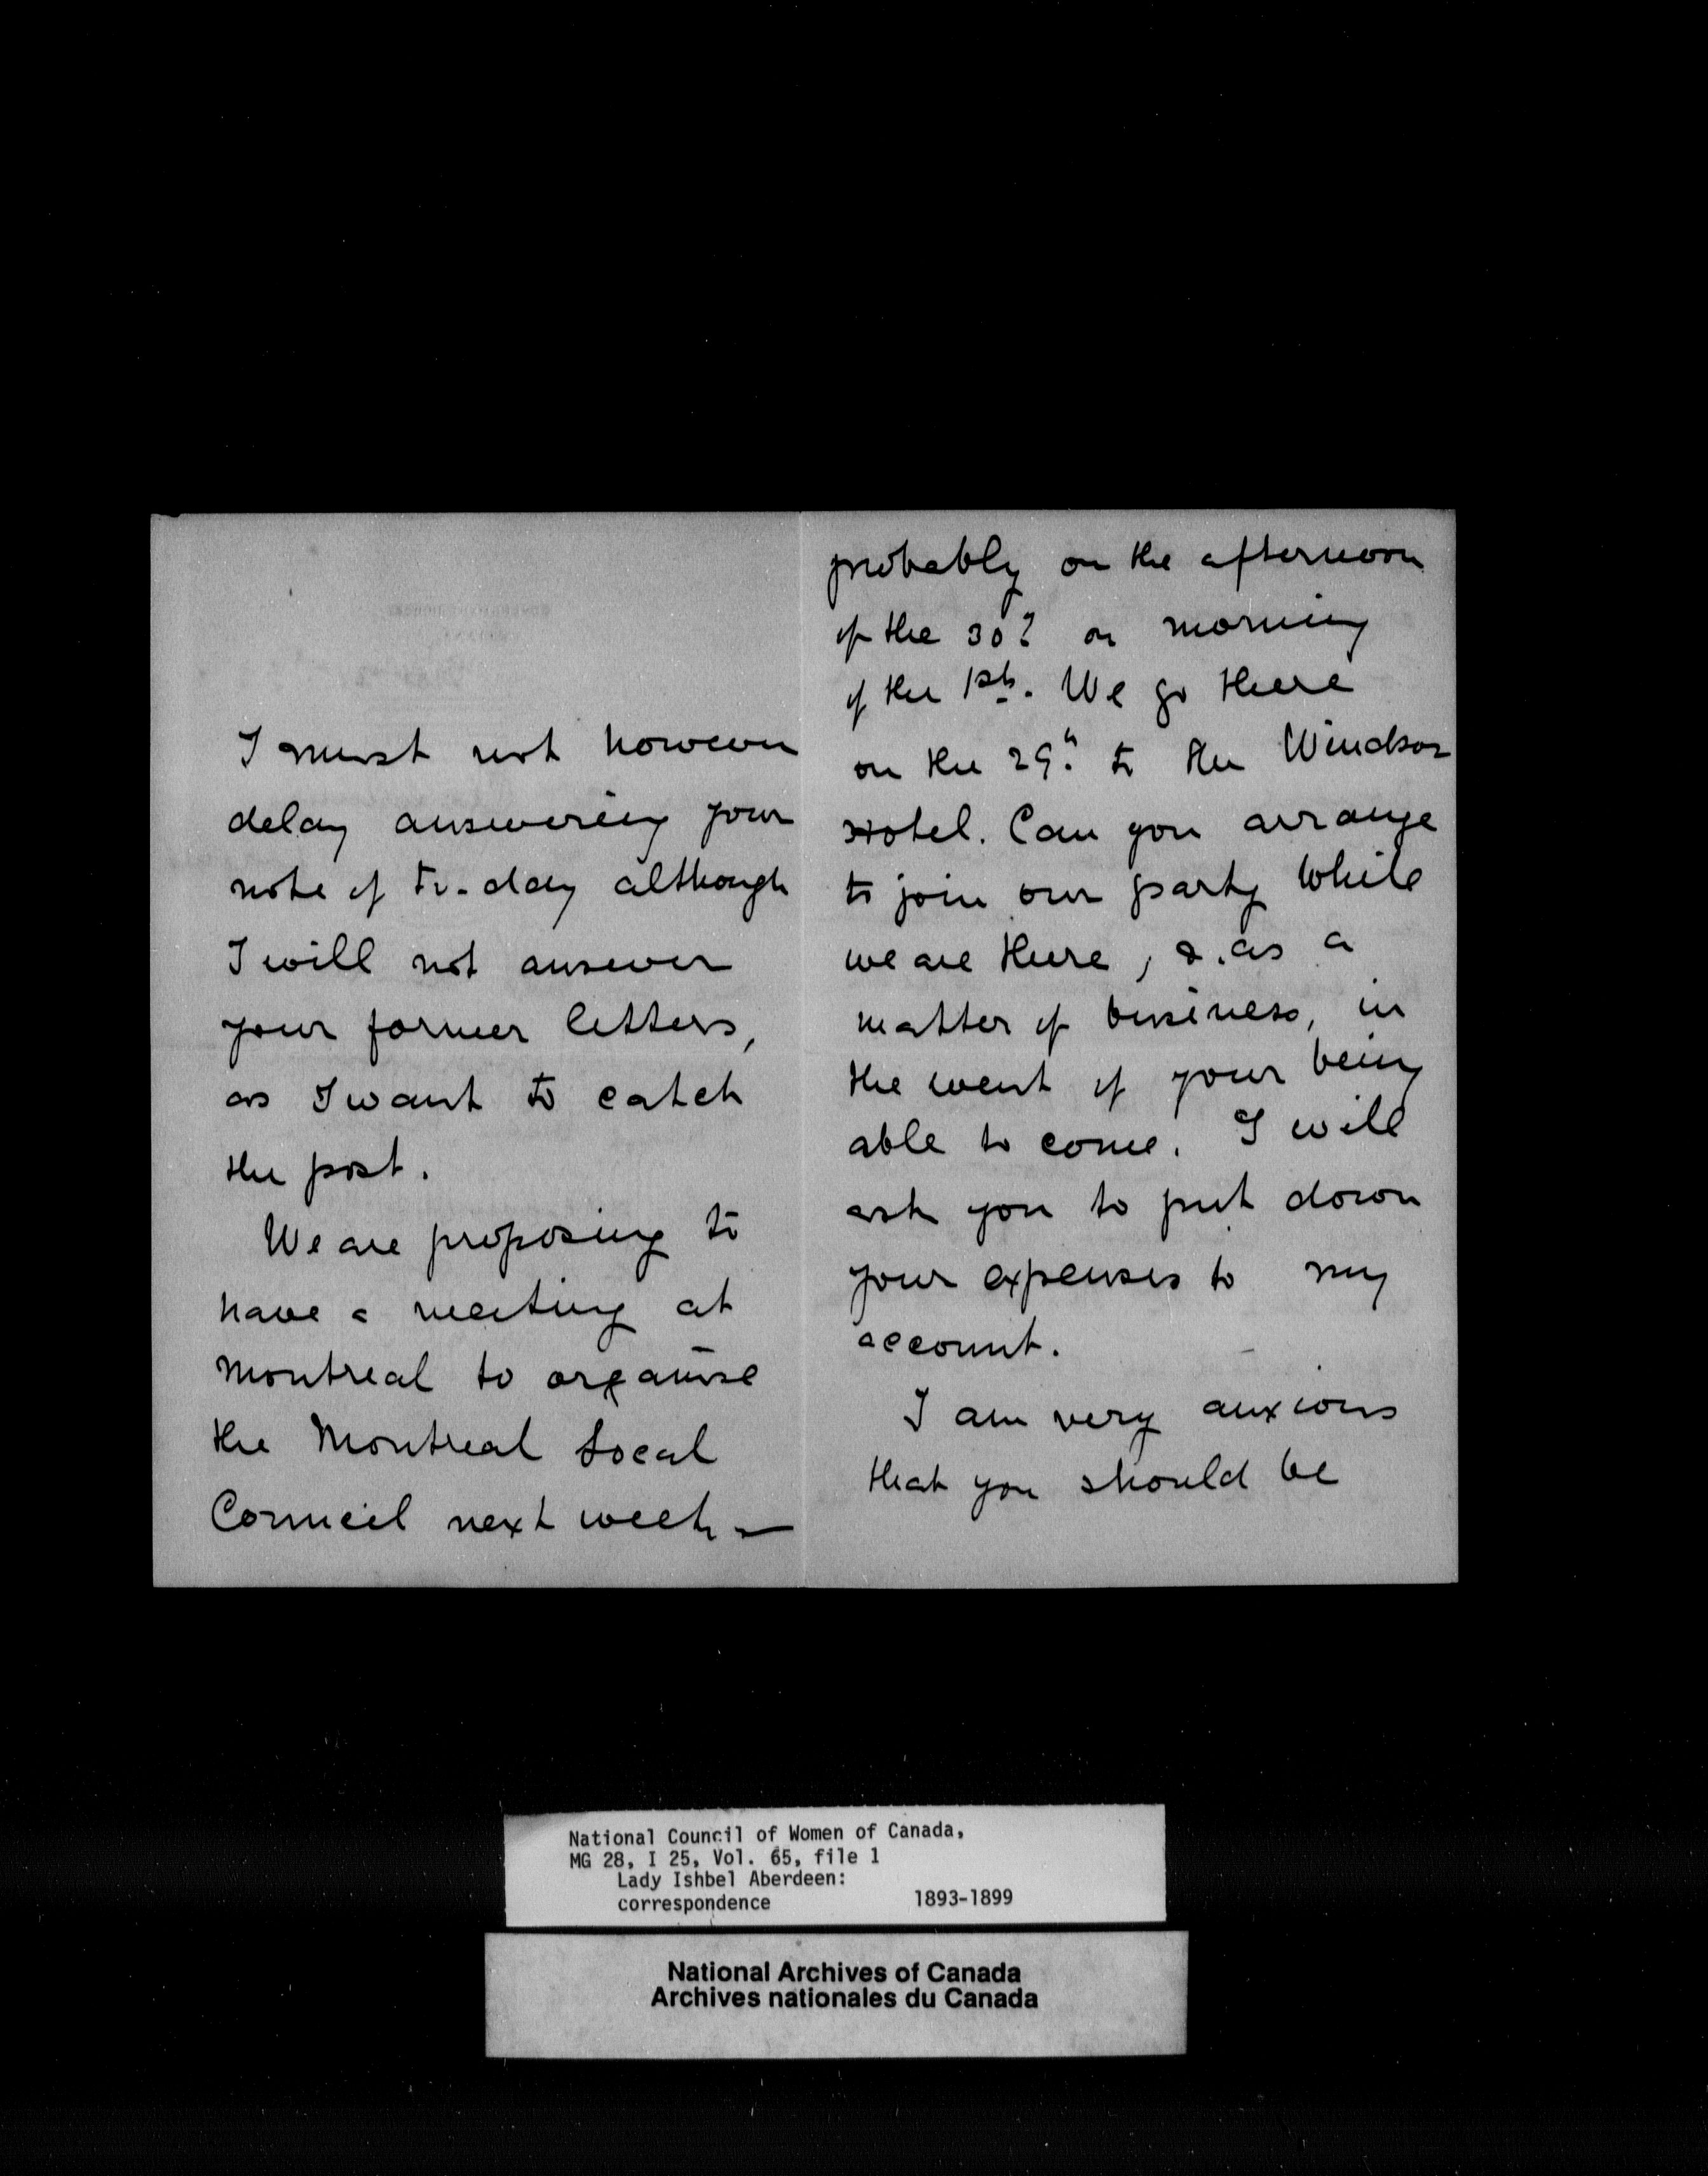 I must not however
delay answering your
note of to-day although
I will not answer
your former letters,
as I want to catch
the post.
We are proposing to
have a meeting at
Montreal to organise
the Montreal Local
Council next week —
probably on the afternoon
of the 30? or morning
of the 1st. We go there
on the 29th to the Windsor
Hotel. Can you arrange
to join our party while
we are there, & as a
matter of business, in
the event of your being
able to come. I will
ask you to put down
your expenses to my
account.
I am very anxious
that you should be
National Council of Women of Canada,
MG 28, I 25, Vol. 65, file 1
Lady Ishbel Aberdeen:
correspondence 1893-1899
National Archives of Canada
Archives nationales du Canada